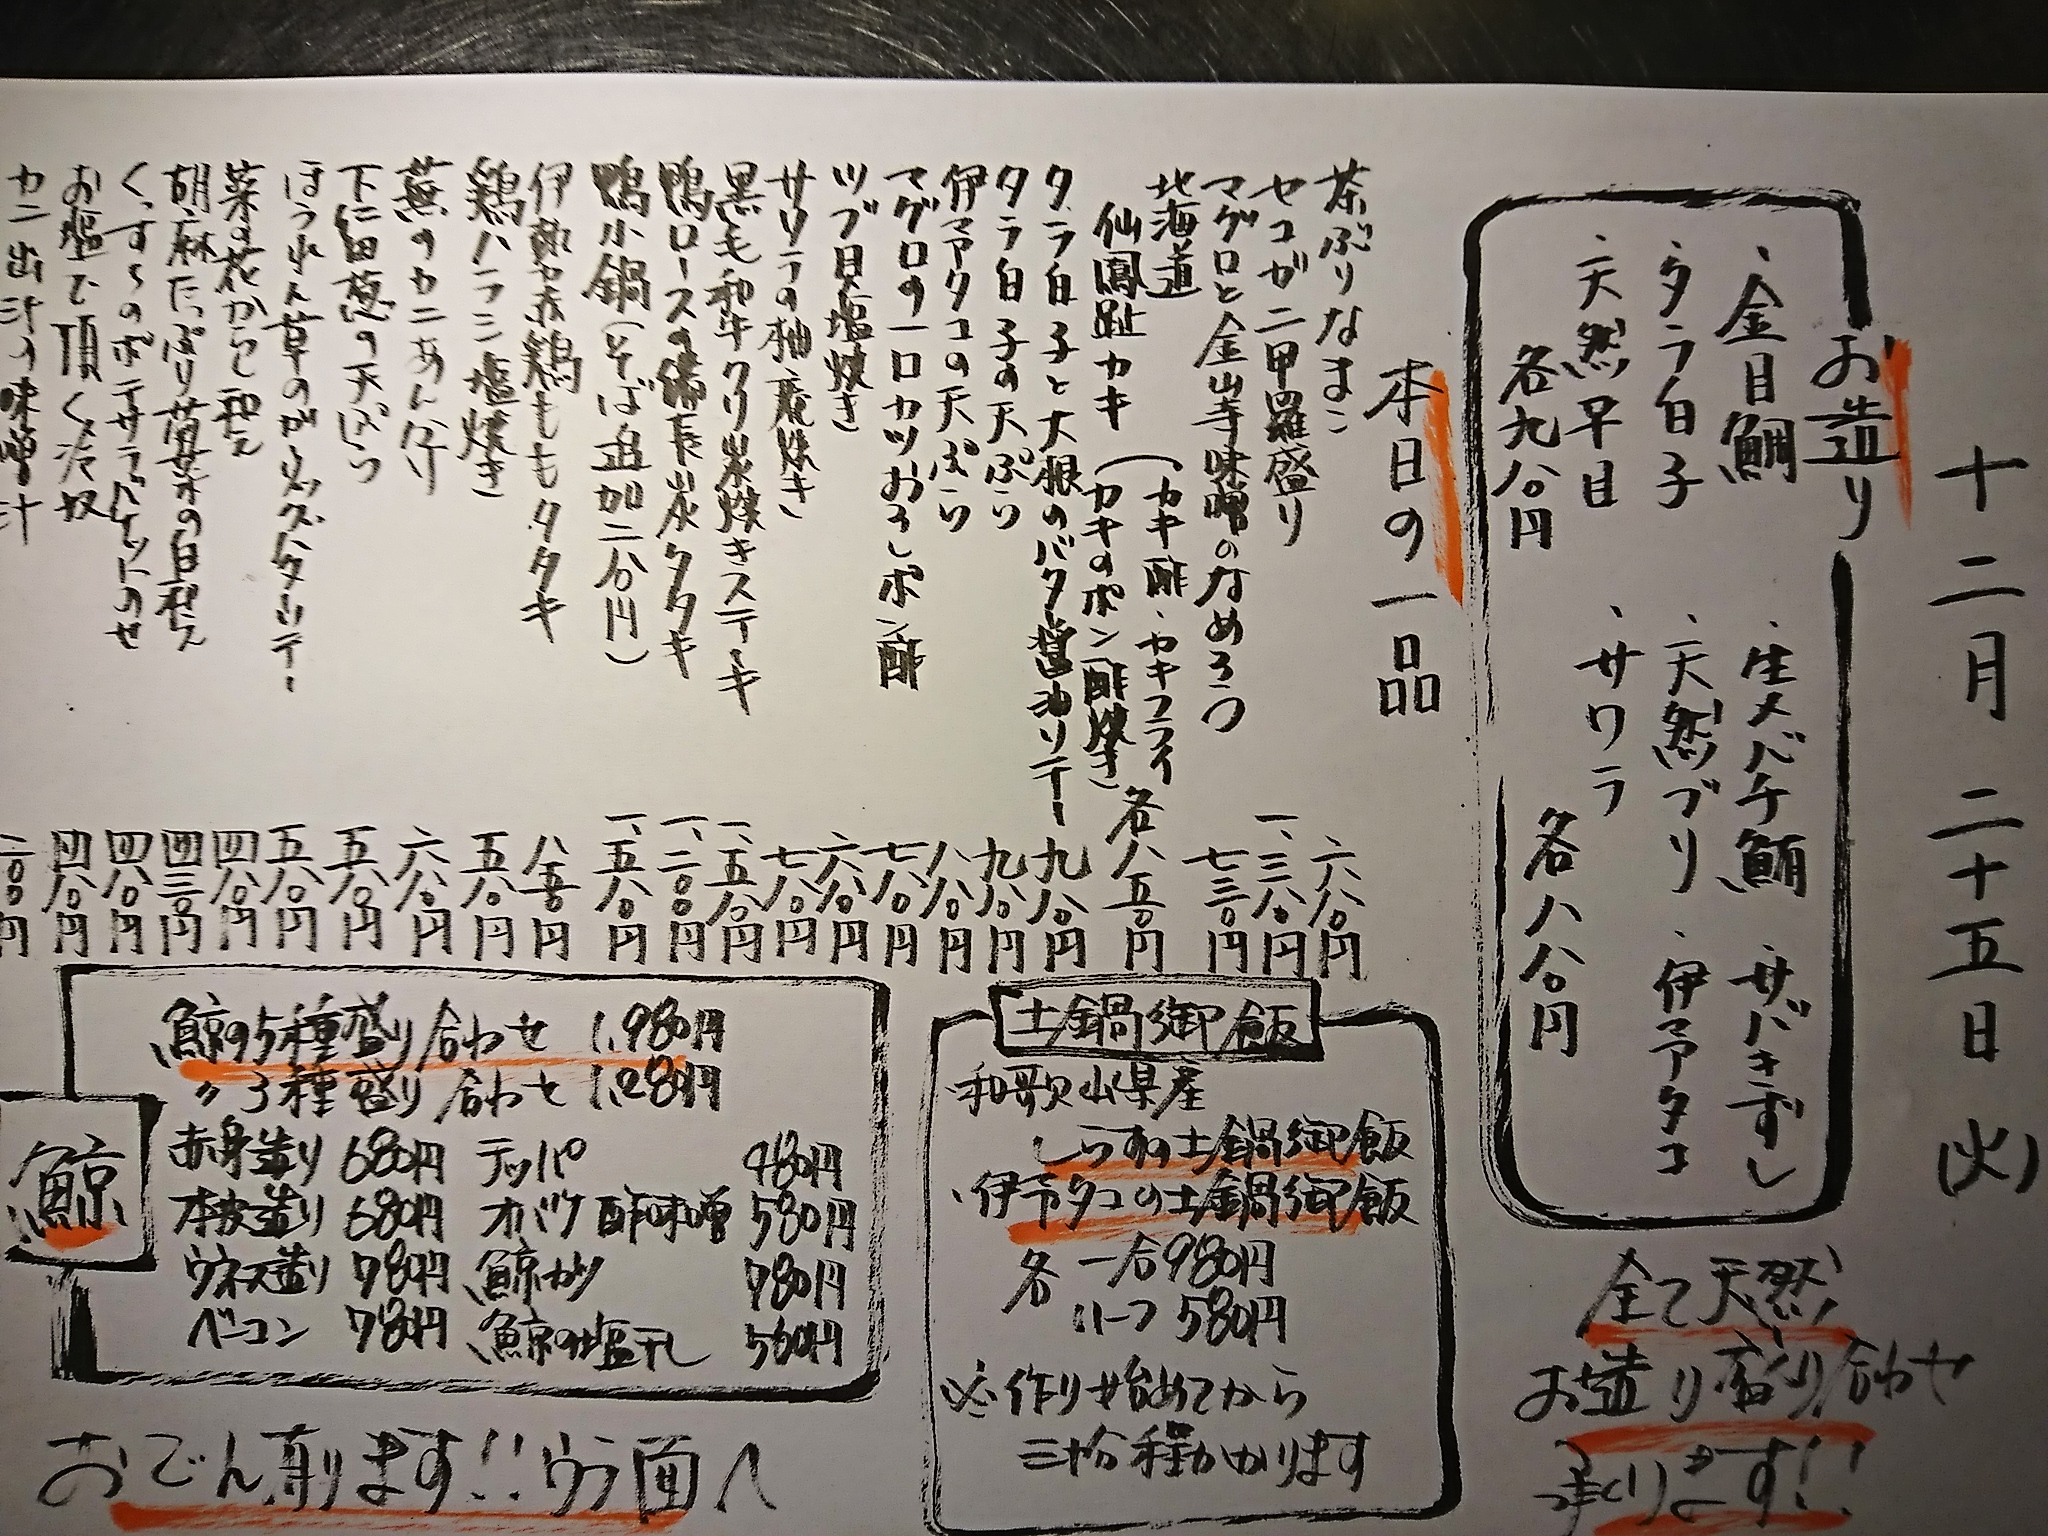 十二月二十五日(火)
お造り
・金目鯛
・タラ白子
・天然平目
各九八〇円
・生メバチ鮪
・天然ブリ
・サワラ
・サバきずし
・伊予タコ
各八八〇円
全て天然
お造り盛り合わせ
承ります!!
本日の一品
茶ぶりなまこ 六八〇円
セコガニ甲羅盛り 一、三八〇円
マグロと金山寺味噌のなめろう 七三〇円
北海道
仙鳳趾カキ
(カキ酢・カキフライ
カキのポン酢焼き) 各八五〇円
タラ白子と大根のバター醤油ソテー 九八〇円
タラ白子の天ぷら 九八〇円
伊予タコの天ぷら 八八〇円
マグロの一口カツおろしポン酢 七八〇円
ツブ貝塩焼き 六八〇円
サワラの柚庵焼き 七八〇円
黒毛和牛クリ炭焼きステーキ 一、五八〇円
鴨ロースの備長炭タタキ 一、二〇〇円
鴨小鍋(そば追加二八〇円) 一、五八〇円
伊勢赤鶏ももタタキ 八五〇円
鶏ハラミ塩焼き 五八〇円
蕪のカニあん掛け 六八〇円
下仁田葱の天ぷら 五八〇円
ほうれん草のガーリックバターソテー 五八〇円
菜の花からし和え 四八〇円
胡麻たっぷり菊菜の白和え 四三〇円
くっするのポテサラバゲットのせ 四八〇円
お塩で頂く冷奴 四八〇円
カニ出汁の味噌汁 二〇〇円
土鍋御飯
・和歌山県産
しらすの土鍋御飯
・伊予タコの土鍋御飯
各 一合980円
ハーフ 580円
※作り始めてから
三十分程かかります
鯨
鯨の5種盛り合わせ 1,980円
〃3種盛り合わせ 1,280円
赤身造り 680円 テッパ 480円
本皮造り 680円 オバケ酢味噌 580円
ウネス造り 780円 鯨カツ 780円
ベーコン 780円 鯨の塩干し 560円
おでん有ります!!ウラ面へ